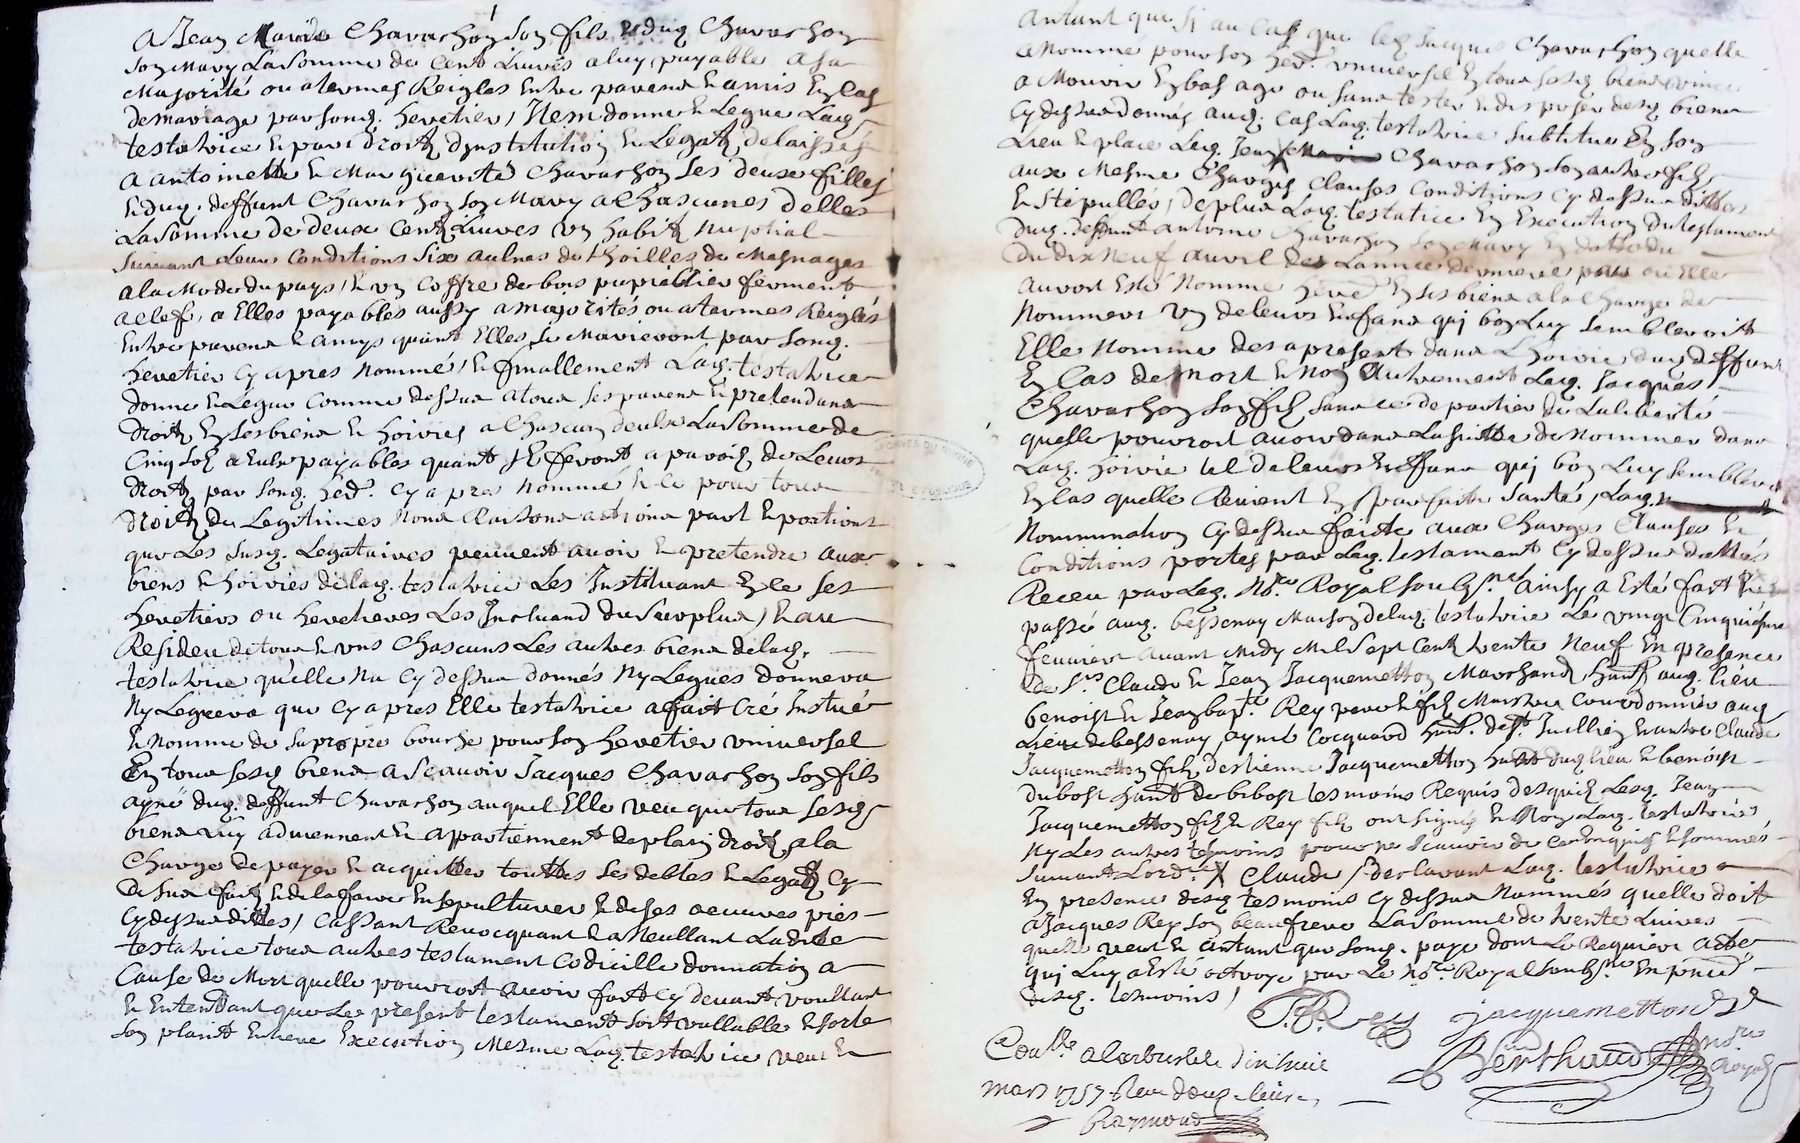 A Jean Marie Chavachon son fils et dud. Chavachon
son mary la somme de cent livres a luy payable a sa
majorité ou a termes reigles entre parens et amis en cas
de mariage par sond. heretier, Item donne et legue lad.
testatrice et par droit d'institution et legats delaissés
a antoinette et Margueritte Chavachon ses deux filles
et dud. deffunt Chavachon son mary a chascunes d'elles
la somme de deux cent livres un habit nuptial
suivant leurs conditions six aulnes de thoilles de mesnages
a la mode du pays, et un coffre de bois fermant
a clef, a elles payables aussy a majorités ou a termes reiglés
entre parens et amys quant elles se marieront par sond.
heretier cy apres nommé, et finallement lad. testatrice
donne et legue comme dessus a tous ses parens et pretendans
droits en ses biens et hoiries a chascun deulx la somme de
cinq sol a eulx payables quant ils feront aparoir de leurs
droits par sond. hed. cy apres nommé et ce pour tous
droits de legitimes noms raisons actions part et portions
que les susd. legataires peuvent avoir et pretendre aux
biens et hoiries de lad. testatrice les instituant en ce ses
heretiers ou heretieres les excluand du surplus, et au
resideu de tous et uns chascuns les autres biens de lad.
testatrice qu'elle na cy dessus donnés ny legues donnera
ny leguera que cy apres elle testatrice a fait cré instué
et nomme de sa propre bouche pour son heretier universel
en tous sesd. biens a scavoir Jacques Chavachon son fils
ayné dud. deffunt Chavachon auquel elle veu que tous sesd.
biens luy adviennent et appartiennent de plain droit a la
charge de payer et acquitter touttes ses debtes et legats cy
dessus faits et de la faire ensepulturer et de ses oeuvres pies
cy dessus dittes, cassant revocquant et aneullant la dite
testatrice tous autres testament codicille donnation a
cause de mort quelle pourroit avoir fait cy devant voullant
et entendant que le present testament soit vallable et sorte
son plain et entiere execution mesme lad. testatrice veut et
antant que si au cas que led. Jacques Chavachon quelle
a nommé pour son hed. universel en tous sesd. biens vint
a mourir en bas age ou sans tester et disposer desd. biens
cy dessus donnés aud. cas lad. testatrice subtitue en son
lieu et place led. Jean Marie Chavachon son autre fils
aux mesme charges clauses conditions cy dessus dittes
et stipullés, de plus lad. testatrice en execution du testament
dud. deffunt antoine Chavachon son mary en datte du
du dix neuf avril de lannee derniere par ou elle
auroit esté nommé hered. en ses biens a la charge de
nommer un de leurs enfans qui bon luy sembleroit
Elle nomme des apresent dans l'hoirie dud. deffunt
en cas de mort et non autrement led. Jacques
Chavachon son fils sans ce departir de la liberté
quelle pourroit avoir dans la suitte de nommer dans
lad. hoirie tel de leurs enffans qui bon luy semblera
en cas quelle revient en parfaite santé, lad.
nommination cy dessus faitte aux charges clauses et
conditions portes par led. testament cy dessus datté
Receu par led. no.re Royal soub.né ainsy a esté fait et
passé aud. bessenay maison de lad. testatrice le vingt cinquiesme
fevrier avant midy mil sept cent trente neuf en presence
de s.rs Claude et Jean Jacquemetton marchand hant aud. lieu
benoist et Jean bap.te Rey pere et fils maistre courdonnier aud.
lieu de bessenay, aymé Cocquard hant. de st. Jullien et autre Claude
Jacquemetton fils d'estienne Jacquemetton hant dud. lieu et benoist
Dubost hant de bibost tesmoins requis desquels lesd. Jean
Jacquemetton fils et Rey fils ont signés et non lad. testatrice
ny les autres tesmoins pour ne scavoir de ce enquis et sommés
suivant lord.ce X Claude / declarant lad. testatrice
en presence desd. tesmoins cy dessus nommés quelle doit
a Jacques Rey son beaufrere la somme de trente livres
quelle veut et antant que sond. paye dont le requiere acte
qui luy a esté octroye par le no.re Royal soub.né en pnce
desd. tesmoins /
J. B. Rey Jacquemetton
Berthaud no.re Royal
Con.lle a larbresle
mars 1757 Receu douze livres
Raymond